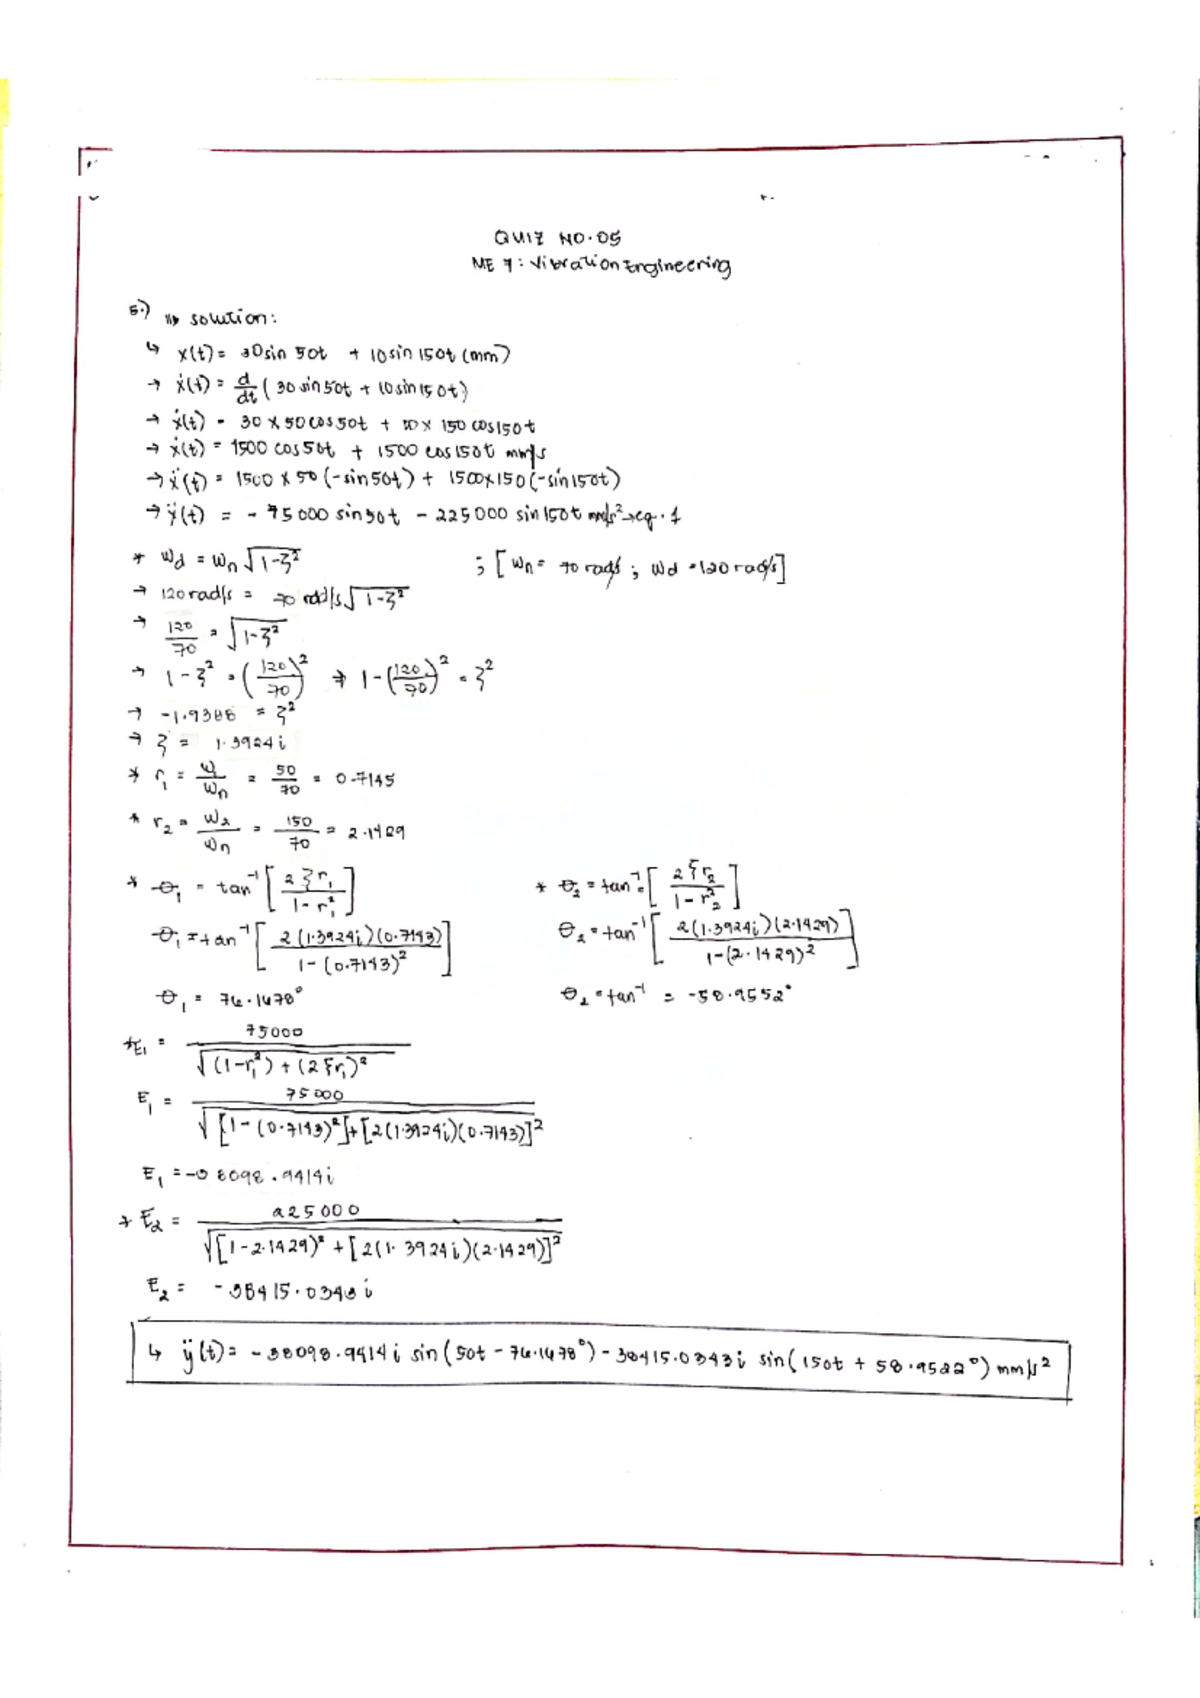 QUIZ NO.05
ME 7: Vibration Engineering
5.) ⇒ solution:
↳ x(t) = 30sin 50t + 10sin 150t (mm)
→ ẋ(t) = d/dt (30 sin50t + 10sin150t)
→ ẋ(t) = 30 x 50cos50t + 10 x 150 cos150t
→ ẋ(t) = 1500 cos50t + 1500 cos150t mm/s
→ ẍ(t) = 1500 x 50 (-sin50t) + 1500x150 (-sin150t)
→ ẍ(t) = - 75000 sin50t - 225000 sin150t mm/s² → eq. 1
* ωd = ωn √1-ξ² ; [ωn = 70 rad/s ; ωd = 120 rad/s]
→ 120 rad/s = 70 rad/s √1-ξ²
→ 120/70 = √1-ξ²
→ 1-ξ² = (120/70)² ⇒ 1-(120/70)² = ξ²
→ -1.9388 = ξ²
→ ξ = 1.3924i
* r₁ = ω/ωn = 50/70 = 0.7145
* r₂ = ω₂/ωn = 150/70 = 2.1429
* θ₁ = tan⁻¹ [2ξr₁ / 1-r₁²] * θ₂ = tan⁻¹ [2ξr₂ / 1-r₂²]
θ₁ = tan⁻¹ [2(1.3924i)(0.7143) / 1-(0.7143)²] θ₂ = tan⁻¹ [2(1.3924i)(2.1429) / 1-(2.1429)²]
θ₁ = 76.1478° θ₂ = tan⁻¹ = -58.9552°
*E₁ = 75000 / √(1-r₁²) + (2ξr₁)²
E₁ = 75000 / √[1-(0.7143)²]+[2(1.3924i)(0.7143)]²
E₁ = -38098.9414i
* E₂ = 225000 / √[1-2.1429)² + [2(1.3924i)(2.1429)]²
E₂ = -38415.0343i
↳ ÿ(t) = -38098.9414i sin(50t - 76.1478°) - 38415.0343i sin(150t + 58.9522°) mm/s²